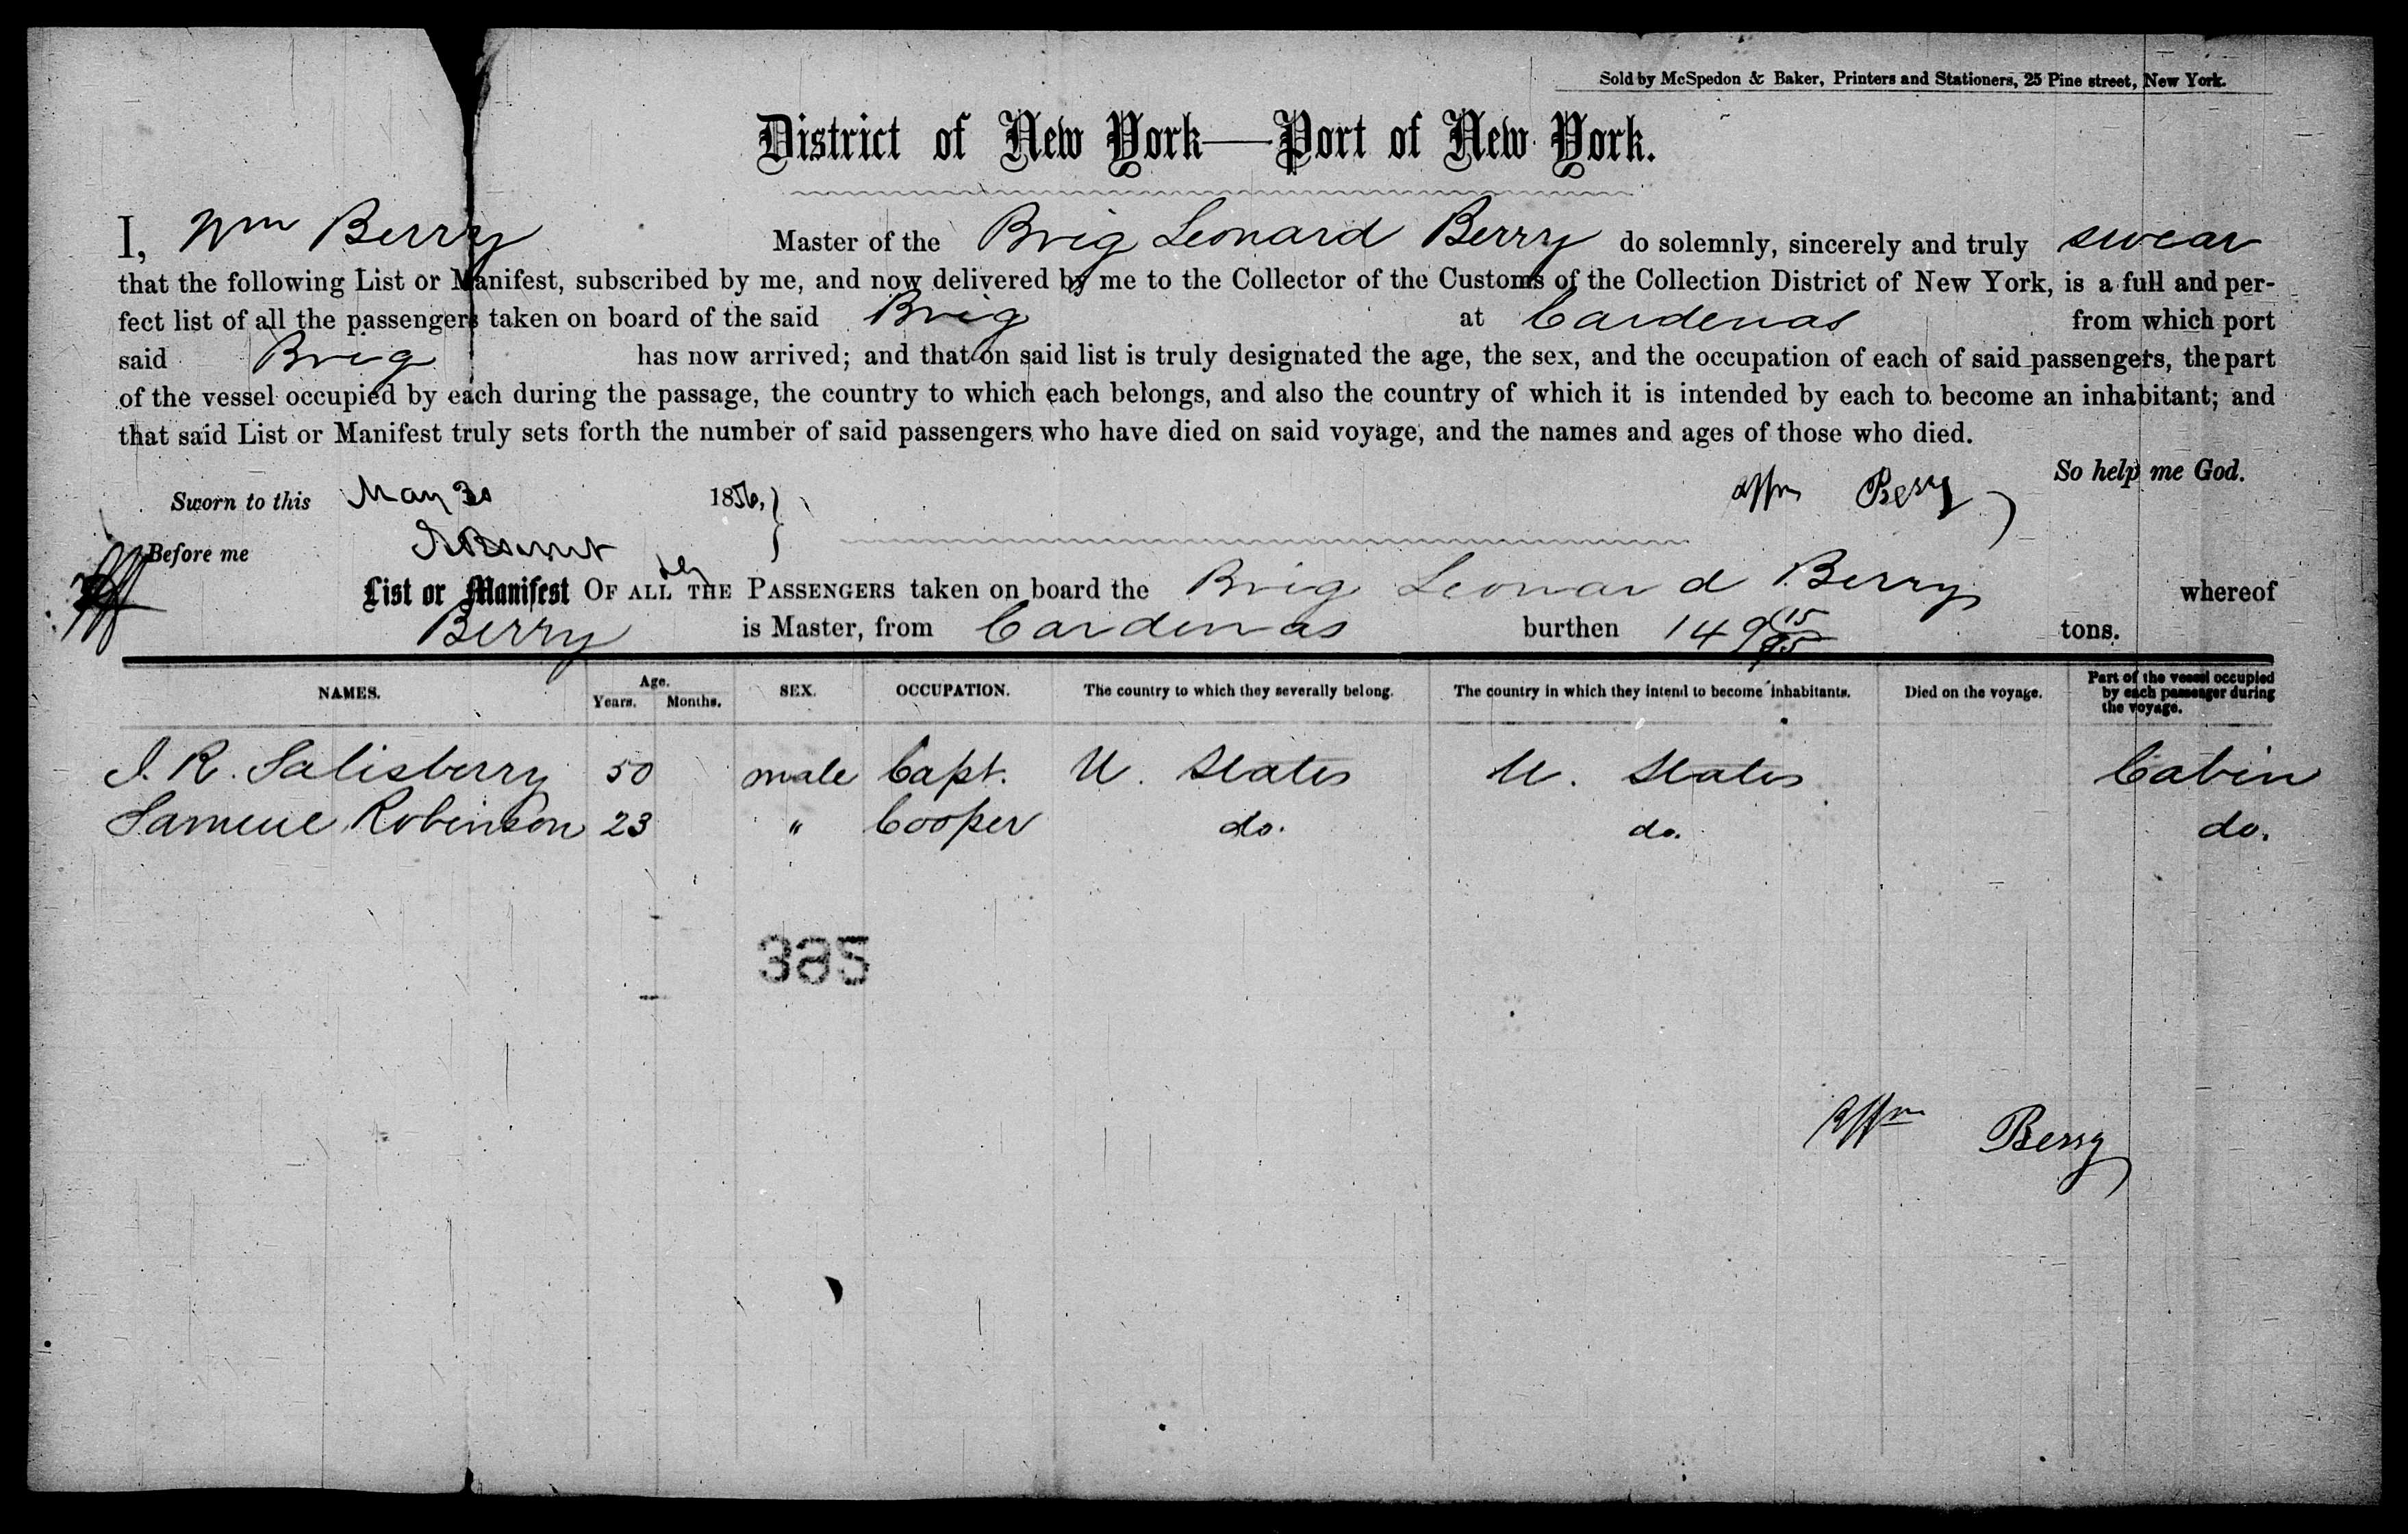 Sold by McSpedon & Baker, Printers and Stationers, 25 Pine street, New York.
District of New York—Port of New York.
I, Wm Berry Master of the Brig Leonard Berry do solemnly, sincerely and truly swear
that the following List or Manifest, subscribed by me, and now delivered by me to the Collector of the Customs of the Collection District of New York, is a full and per-
fect list of all the passengers taken on board of the said Brig at Cardenas from which port
said Brig has now arrived; and that on said list is truly designated the age, the sex, and the occupation of each of said passengers, the part
of the vessel occupied by each during the passage, the country to which each belongs, and also the country of which it is intended by each to become an inhabitant; and
that said List or Manifest truly sets forth the number of said passengers who have died on said voyage, and the names and ages of those who died.
So help me God.
Sworn to this May 30 1856, Wm Berry
Before me
List or Manifest OF ALL THE PASSENGERS taken on board the Brig Leonard Berry whereof
Berry is Master, from Cardenas burthen 149 15/95 tons.
NAMES. Age. Years. Months. SEX. OCCUPATION. The country to which they severally belong. The country in which they intend to become inhabitants. Died on the voyage. Part of the vessel occupied by each passenger during the voyage.
I. R. Salisberry 50 male Capt. U. States U. States Cabin
Samuel Robinson 23 " Cooper do. do. do.
385
Wm Berry